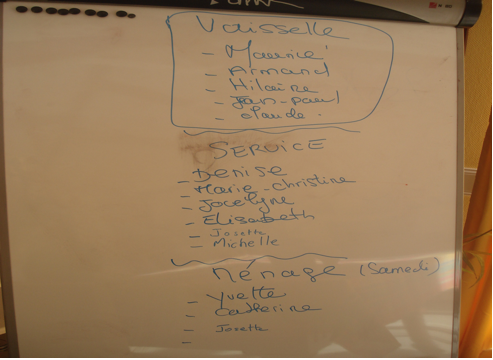 Vaisselle
- Maurice
- Armand
- Hilaire
- Jean-paul
- claude.
SERVICE
- Denise
- Marie-christine
- Jocelyne
- Elisabeth
- Josette
- Michelle
Ménage (Samedi)
- Yvette
- Catherine
- Josette
-